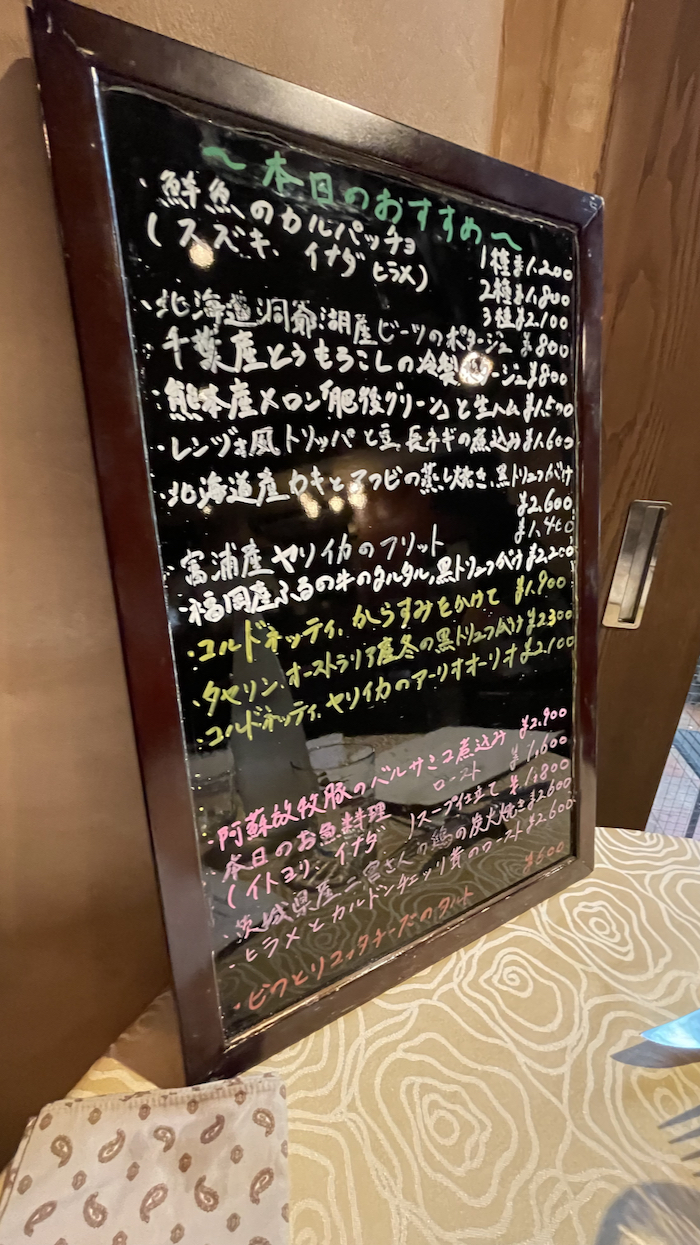 ～本日のおすすめ～
・鮮魚のカルパッチョ 1種 ¥1,200
(スズキ、イナダ ヒラメ) 2種 ¥1,800
3種 ¥2,100
・北海道洞爺湖産ビーツのポタージュ ¥800
・千葉産とうもろこしの冷製 ージュ ¥800
・熊本産メロン「肥後グリーン」と生ハム ¥1,500
・レンヅォ風トリッパと豆、長ネギの煮込み ¥1,600
・北海道産カキとアワビの蒸し焼き、黒トリュフがけ
¥2,600
¥1,400
・富浦産ヤリイカのフリット
・福岡産ふるの牛のタルタル、黒トリュフがけ ¥2,200
・コルドネッティ、からすみをかけて ¥1,900
・タヤリン、オーストラリア産冬の黒トリュフがけ ¥2300
・コルドネッティ、ヤリイカのアーリオオーリオ ¥2,100
・阿蘇放牧豚のバルサミコ煮込み ¥2,900
・本日のお魚料理 ロースト ¥1,600
(イトヨリ、イナダ ) スープ仕立て ¥1,800
・茨城県産二宮さんの鶏の炭火焼き ¥2,600
・ヒラメとカルドンチェッリ茸のロースト ¥2,600
・ビワとリコッタチーズのタルト ¥600